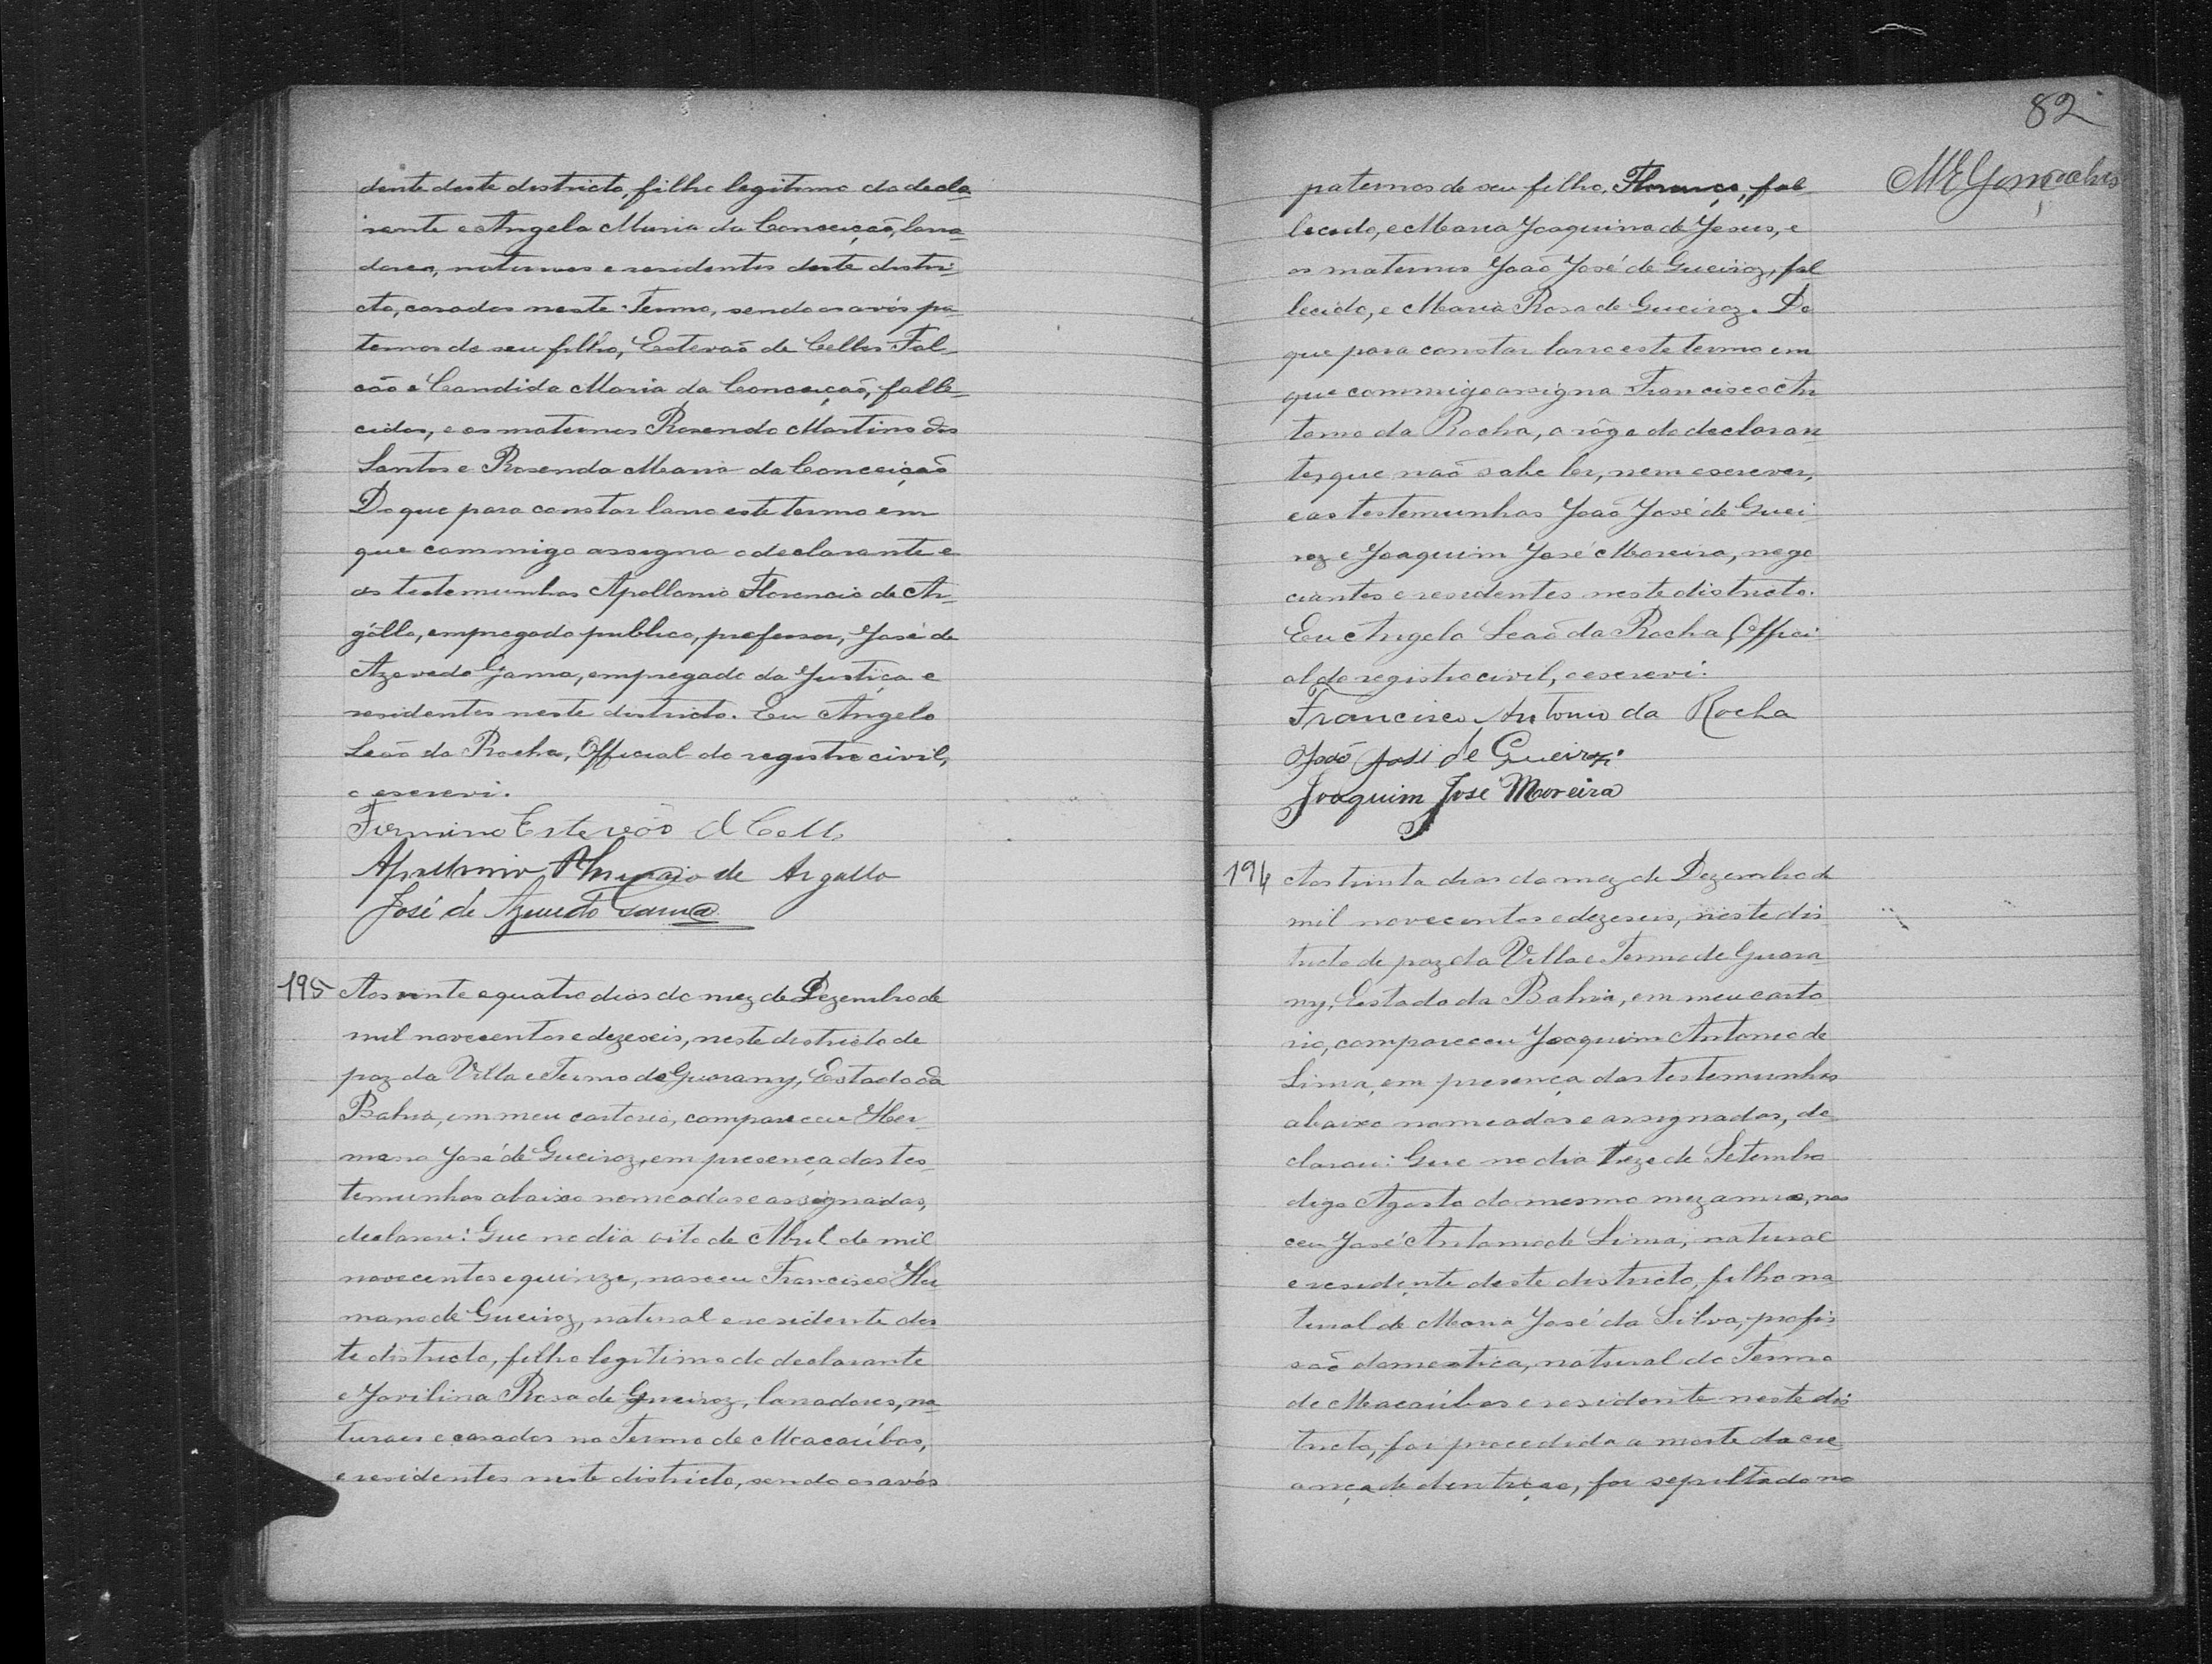 dente deste districto, filho legitimo do decla-
rante e Angela Maria da Conceição, lavra-
dores, naturaes e residentes deste distri-
cto, casados neste Termo, sendo os avós pa-
ternos de seu filho, Estevaõ de Celles Fal-
cão e Candida Maria da Conceiçaõ, falle-
cidos, e os maternos Rosendo Martins dos
Santos e Rosenda Maria da Conceiçaõ
Do que para constar lavro este termo em
que commigo assigna o declarante e
as testemunhas Apollonio Florencio de Ar-
gôllo, empregado publico, professor, José de
Azevedo Gama, empregado da Justiça e
residentes neste districto. Eu Angelo
Leaõ da Rocha, Official do registro civil,
o escrevi.
Firmino Estevaõ de Celles
Apollonio Florencio de Argollo
José de Azevedo Gama
195 Aos vinte e quatro dias do mez de Dezembro de
mil novecentos e dezeseis, neste districto de
paz da Villa e Termo de Guarany, Estado da
Bahia, em meu cartorio, compareceu Her-
mano José de Gueiroz, em presença das tes-
temunhas abaixo nomeadas e assignadas,
declarou: Que no dia oito de Abril de mil
novecentos e quinze, nasceu Francisco Her
mano de Gueiroz, natural e residente des-
te districto, filho legitimo do declarante
e Jovilina Rosa de Gueiroz, lavradores, na-
turaes e casados no Termo de Macaúbas,
e residentes neste districto, sendo os avós
82
MEGonçalves
paternos de seu filho, fal-
lecido, e Maria Joaquina de Jesus, e
os maternos Joaõ José de Gueiroz, fal
lecido, e Maria Rosa de Gueiroz. Do
que para constar lavro este termo em
que commigo assigna Francisco An
tonio da Rocha, a rôgo do declaran
te, que naõ sabe ler, nem escrever,
e as testemunhas Joaõ José de Guei
roz e Joaquim José Moreira, nego
ciantes e residentes neste districto.
Eu Angelo Leaõ da Rocha, Offici
al do registro civil, o escrevi.
Francisco Antonio da Rocha
Joaõ José de Gueiroz
Joaquim José Moreira
194 Aos trinta dias do mez de Dezembro de
mil novecentos e dezeseis, neste dis
tricto de paz da Villa e Termo de Guara
ny, Estado da Bahia, em meu carto
rio, compareceu Joaquim Antonio de
Lima, em presença das testemunhas
abaixo nomeadas e assignadas, de-
clarou: Que no dia treze de Setembro
digo Agosto do mesmo mez anno, nas
ceu José Antonio de Lima, natural
e residente deste districto, filho na
tural de Maria José da Silva, profis
saõ domestica, natural do Termo
de Macaúbas e residente neste dis
tricto, foi procedida a morte da cre
ança de dentiçao, foi sepultado no